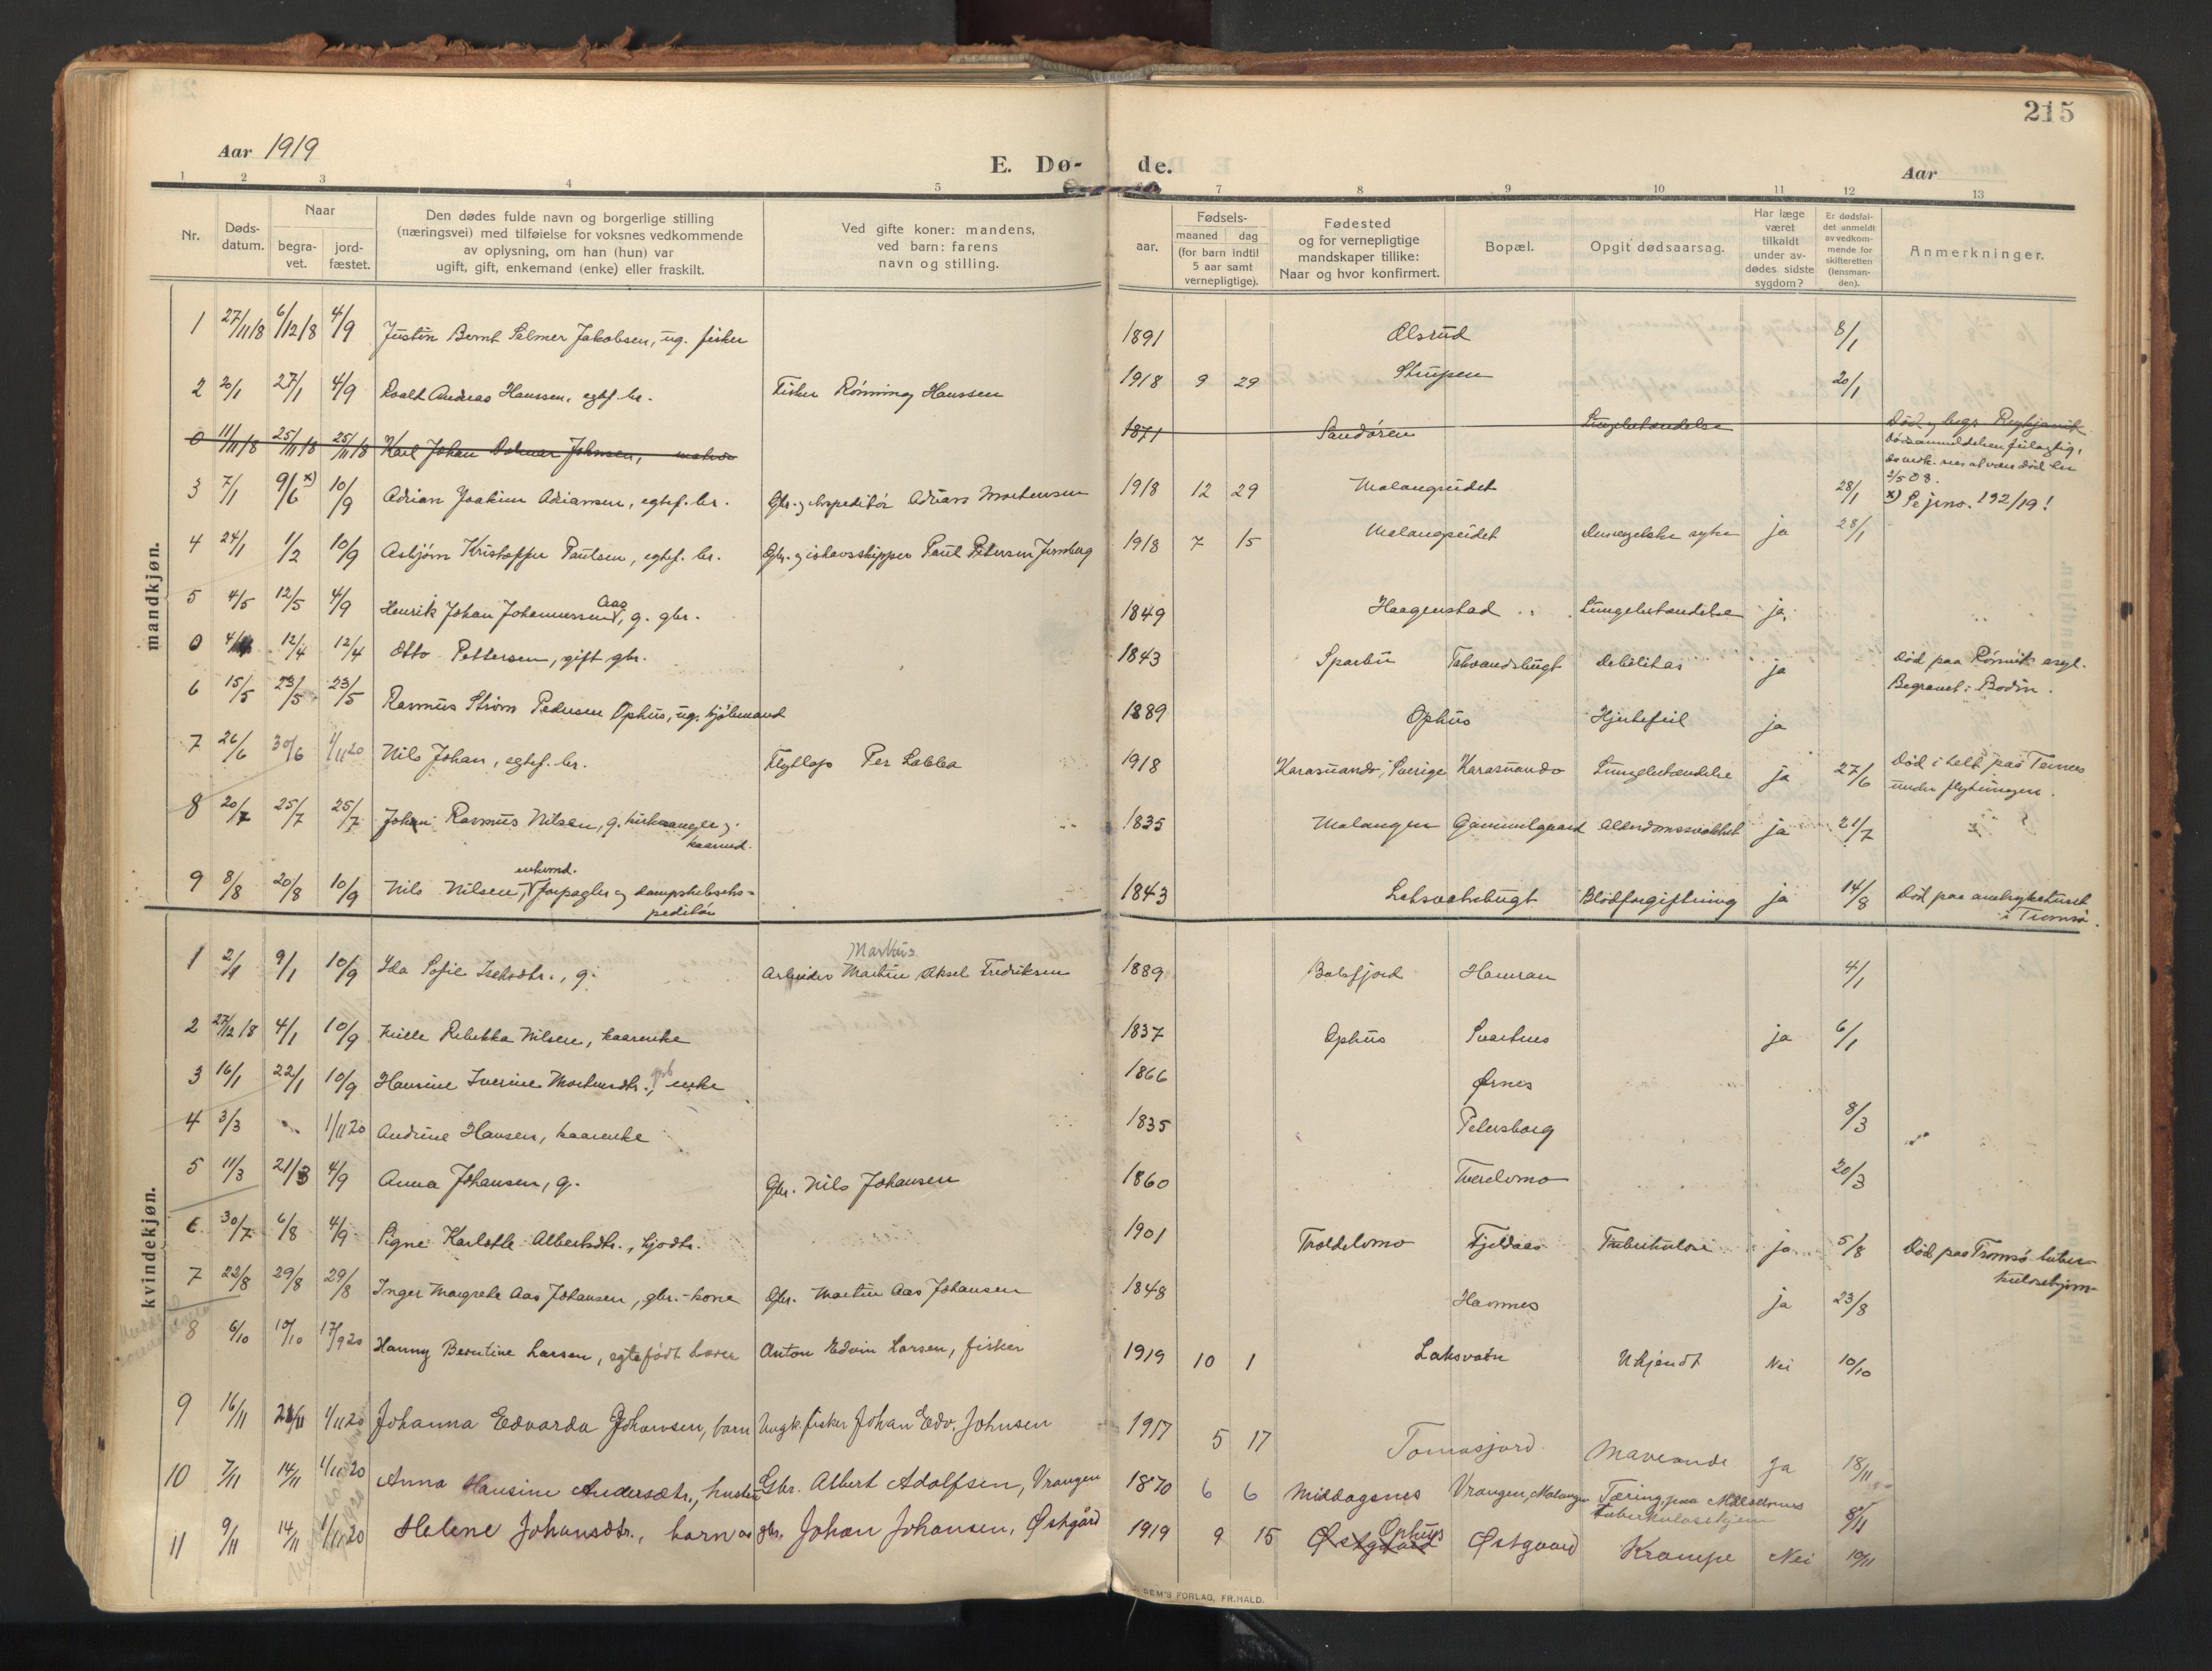 215
Aar 1919
E. Dø- de.
Aar
1 2 3 4 5 7 8 9 10 11 12 13
Nr.
Døds-datum.
Naar
begra-vet.
jord-fæstet.
Den dødes fulde navn og borgerlige stilling
(næringsvei) med tilføielse for voksnes vedkommende
av oplysning, om han (hun) var
ugift, gift, enkemand (enke) eller fraskilt.
Ved gifte koner: mandens,
ved barn: farens
navn og stilling.
aar.
Fødsels-
maaned dag
(for barn indtil
5 aar samt
vernepligtige).
Fødested
og for vernepligtige
mandskaper tillike:
Naar og hvor konfirmert.
Bopæl.
Opgit dødsaarsag.
Har læge
været
tilkaldt
under av-
dødes sidste
sygdom?
Er dødsfal-
det anmeldt
av vedkom-
mende for
skifteretten
(lensman-
den).
Anmerkninger.
mandkjøn.
1 27/11 18 6/12 18 4/9 Justin Bernt Selmer Jakobsen, ug. fisker 1891 Olsrud 8/1
2 20/1 27/1 4/9 Andreas Hanssen, egtef. br. Fisker Rønning Hanssen 1918 9 29 Strupen 20/1
0 11/11 18 25/11 18 25/11 18 Karl Johan Johnsen, 1871 Sandøren Lungebetændelse Død og begr. Reykjavik
2/5 08.
3 7/1 9/6 x) 10/9 Adrian Joakim Adriansen, egtef. br. Gbr. og ekspeditør Adrians Mortensen 1918 12 29 Malangseidet 28/1 x) Se jrno. 192/19!
4 24/1 1/2 10/9 Asbjørn Kristoffer Paulsen, egtef. br. Gbr. og ishavsskipper Paul Petersen 1918 7 15 Malangseidet Den engelske syke ja 28/1
5 4/5 12/5 4/9 Henrik Johan Johannessen Aas, g. gbr. 1849 Haagenstad Lungebetændelse ja
0 4/4 12/4 12/4 Otto Pettersen, gift gbr. 1843 Sparbu Takvandsbugt debilitas ja Død paa Rønvik asyl.
Begravet i Bodin.
6 15/5 23/5 23/5 Rasmus Strøm Pedersen Ophus, ug. 1889 Ophus Hjertefeil ja
7 26/6 30/6 1/11 20 Nils Johan, egtef. br. Flytlap Per Labba 1918 Karasuando, Sverige Karasuando Lungebetændelse ja 27/6 Død i telt paa Temnes
under flytningen.
8 20/7 25/7 25/7 Johan Rasmus Nilsen, g. kirkesanger og
kaarmd. 1835 Malangen Gammelgaard Alderdomssvakhet ja 21/7
enkemd.
9 8/8 20/8 10/9 Nils Nilsen, forpagter og dampskibseks-
peditør 1843 Laksvatnbugt Blodforgiftning ja 14/8 Død paa amtsykehuset
i Tromsø.
kvindekjøn.
Markus
1 2/1 9/1 10/9 Ida Sofie Isaksdtr., g. Arbeider Martin Aksel Fredriksen 1889 Balsfjord Hamran 4/1
2 27/12 18 4/1 10/9 Mille Rebekka Nilsen, kaarenke 1837 Ophus Svartnes ja 6/1
3 16/1 22/1 10/9 Hansine Iverine Mortensdtr., gb enke 1866 Ørnes
4 3/3 1/11 20 Andrine Hansen, kaarenke 1835 Petersborg 8/3
5 11/3 21/3 4/9 Anna Johansen, g. Gbr. Nils Johansen 1860 Tverelvmo 20/3
6 30/7 6/8 4/9 Signe Karlotte Albertsdtr., gjødtr. 1901 Troldelvmo Fjeldaas Tuberkulose ja 5/8 Død paa Tromsø tuber-
kulosehjem
7 22/8 29/8 29/8 Inger Margrete Aas Johansen, gbr.-kone Gbr. Martin Aas Johansen 1848 Hamnes ja 23/8
8 6/10 10/10 17/9 20 Hanny Berntine Larsen, egtefødt barn Anton Edvin Larsen, fisker 1919 10 1 Laksvatn Ukjendt Nei 10/10
9 16/11 21/11 1/11 20 Johanna Edvarda Johansen, barn Ungk. fisker Johan Edv. Johnsen 1917 5 17 Tomasjord Maveonde Ja 18/11
10 7/11 14/11 1/11 20 Anna Hansine Andersdtr., hustru Gbr. Albert Adolfsen, Vrangen 1870 6 6 Middagsnes Vrangen, Malangen Tæring, paa
Tuberkulosehjem 8/11
11 9/11 14/11 1/11 20 Helene Johansdtr., barn av gbr. Johan Johansen, Østgård 1919 9 15 Østgaard Ophus Østgaard Krampe Nei 10/11
SEM'S FORLAG, FR.HALD.